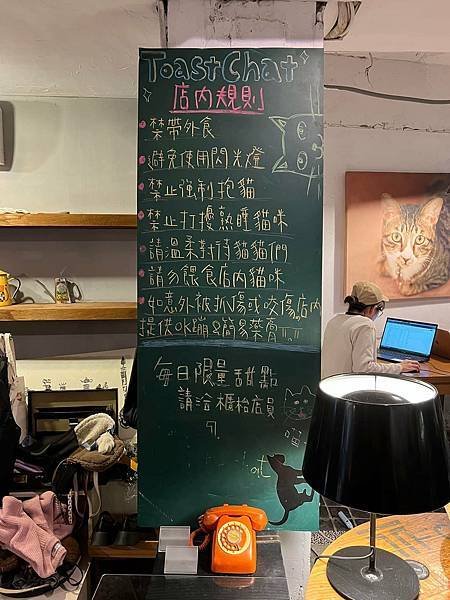 ToastChat
店內規則
禁帶外食
避免使用閃光燈
禁止強制抱貓
禁止打擾熟睡貓咪
請溫柔對待貓貓們
請勿餵食店內貓咪
如意外被抓傷或咬傷店內
提供OK蹦&簡易藥膏
每日限量甜點
請洽櫃枱店員
喵